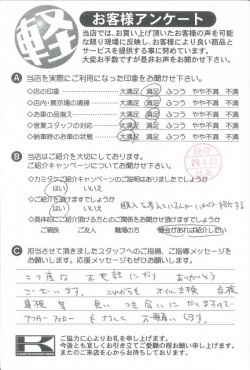 軽
お客様アンケート
当店では、お買い上げ頂いたお客様の声を可能
な限り現場に反映し、お客様により良い商品と
サービスを提供する事に努めています。
大変お手数ですが是非お声をお聞かせ下さい。
A 当店を実際にご利用になった印象をお聞かせ下さい。
◇店の印象 大満足 満足 ふつう やや不満 不満
◇店内・展示場の清掃 大満足 満足 ふつう やや不満 不満
◇お車の品揃え 大満足 満足 ふつう やや不満 不満
◇営業スタッフの対応 大満足 満足 ふつう やや不満 不満
◇納車時のお車の状態 大満足 満足 ふつう やや不満 不満
B 当店はご紹介を大切にしております。
ご紹介キャンペーンについてお聞かせ下さい。
◇カミタはご紹介キャンペーンのご説明はありましたでしょうか
はい いいえ
◇ご紹介を頂けますでしょうか
はい いいえ
◇具体的にご紹介頂ける方とのご関係をお聞かせ頂けますでしょうか
ご親戚 ご友人 職場の方 機会があれば紹介したい
C 担当させて頂きましたスタッフへのご指摘、ご指導メッセージを
お願いします。応援メッセージもぜひお聞かせ下さい。
この度は お世話になり ありがとう
ございました。これからも オイル交換 点検
車検等 長い つき合いに なりますので
アフターフォローも お願いします。
K
ご協力に心よりお礼を申し上げます。
今後とも宜しくお引き立てご愛顧の程お願い申し上げます。
またのご来店を心からお待ちしております。